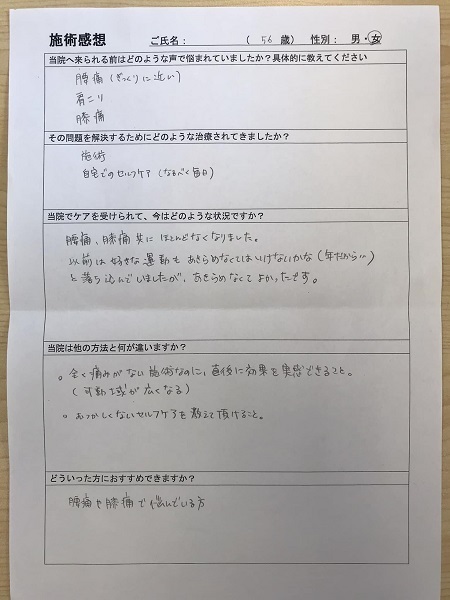 施術感想 ご氏名： （ 56 歳） 性別： 男・女
当院へ来られる前はどのような声で悩まれていましたか？具体的に教えてください
腰痛（ぎっくりに近い）
肩こり
膝痛
その問題を解決するためにどのような治療されてきましたか？
施術
自宅でのセルフケア（なるべく毎日）
当院でケアを受けられて、今はどのような状況ですか？
腰痛、膝痛共にほとんどなくなりました。
以前は好きな運動もあきらめなくてはいけないかな（年だから…）
と落ち込んでいましたが、あきらめなくてよかったです。
当院は他の方法と何が違いますか？
。全く痛みがない施術なのに、直後に効果を実感できること。
（可動域が広くなる）
。むつかしくないセルフケアを教えて頂けること。
どういった方におすすめできますか？
腰痛や膝痛で悩んでいる方